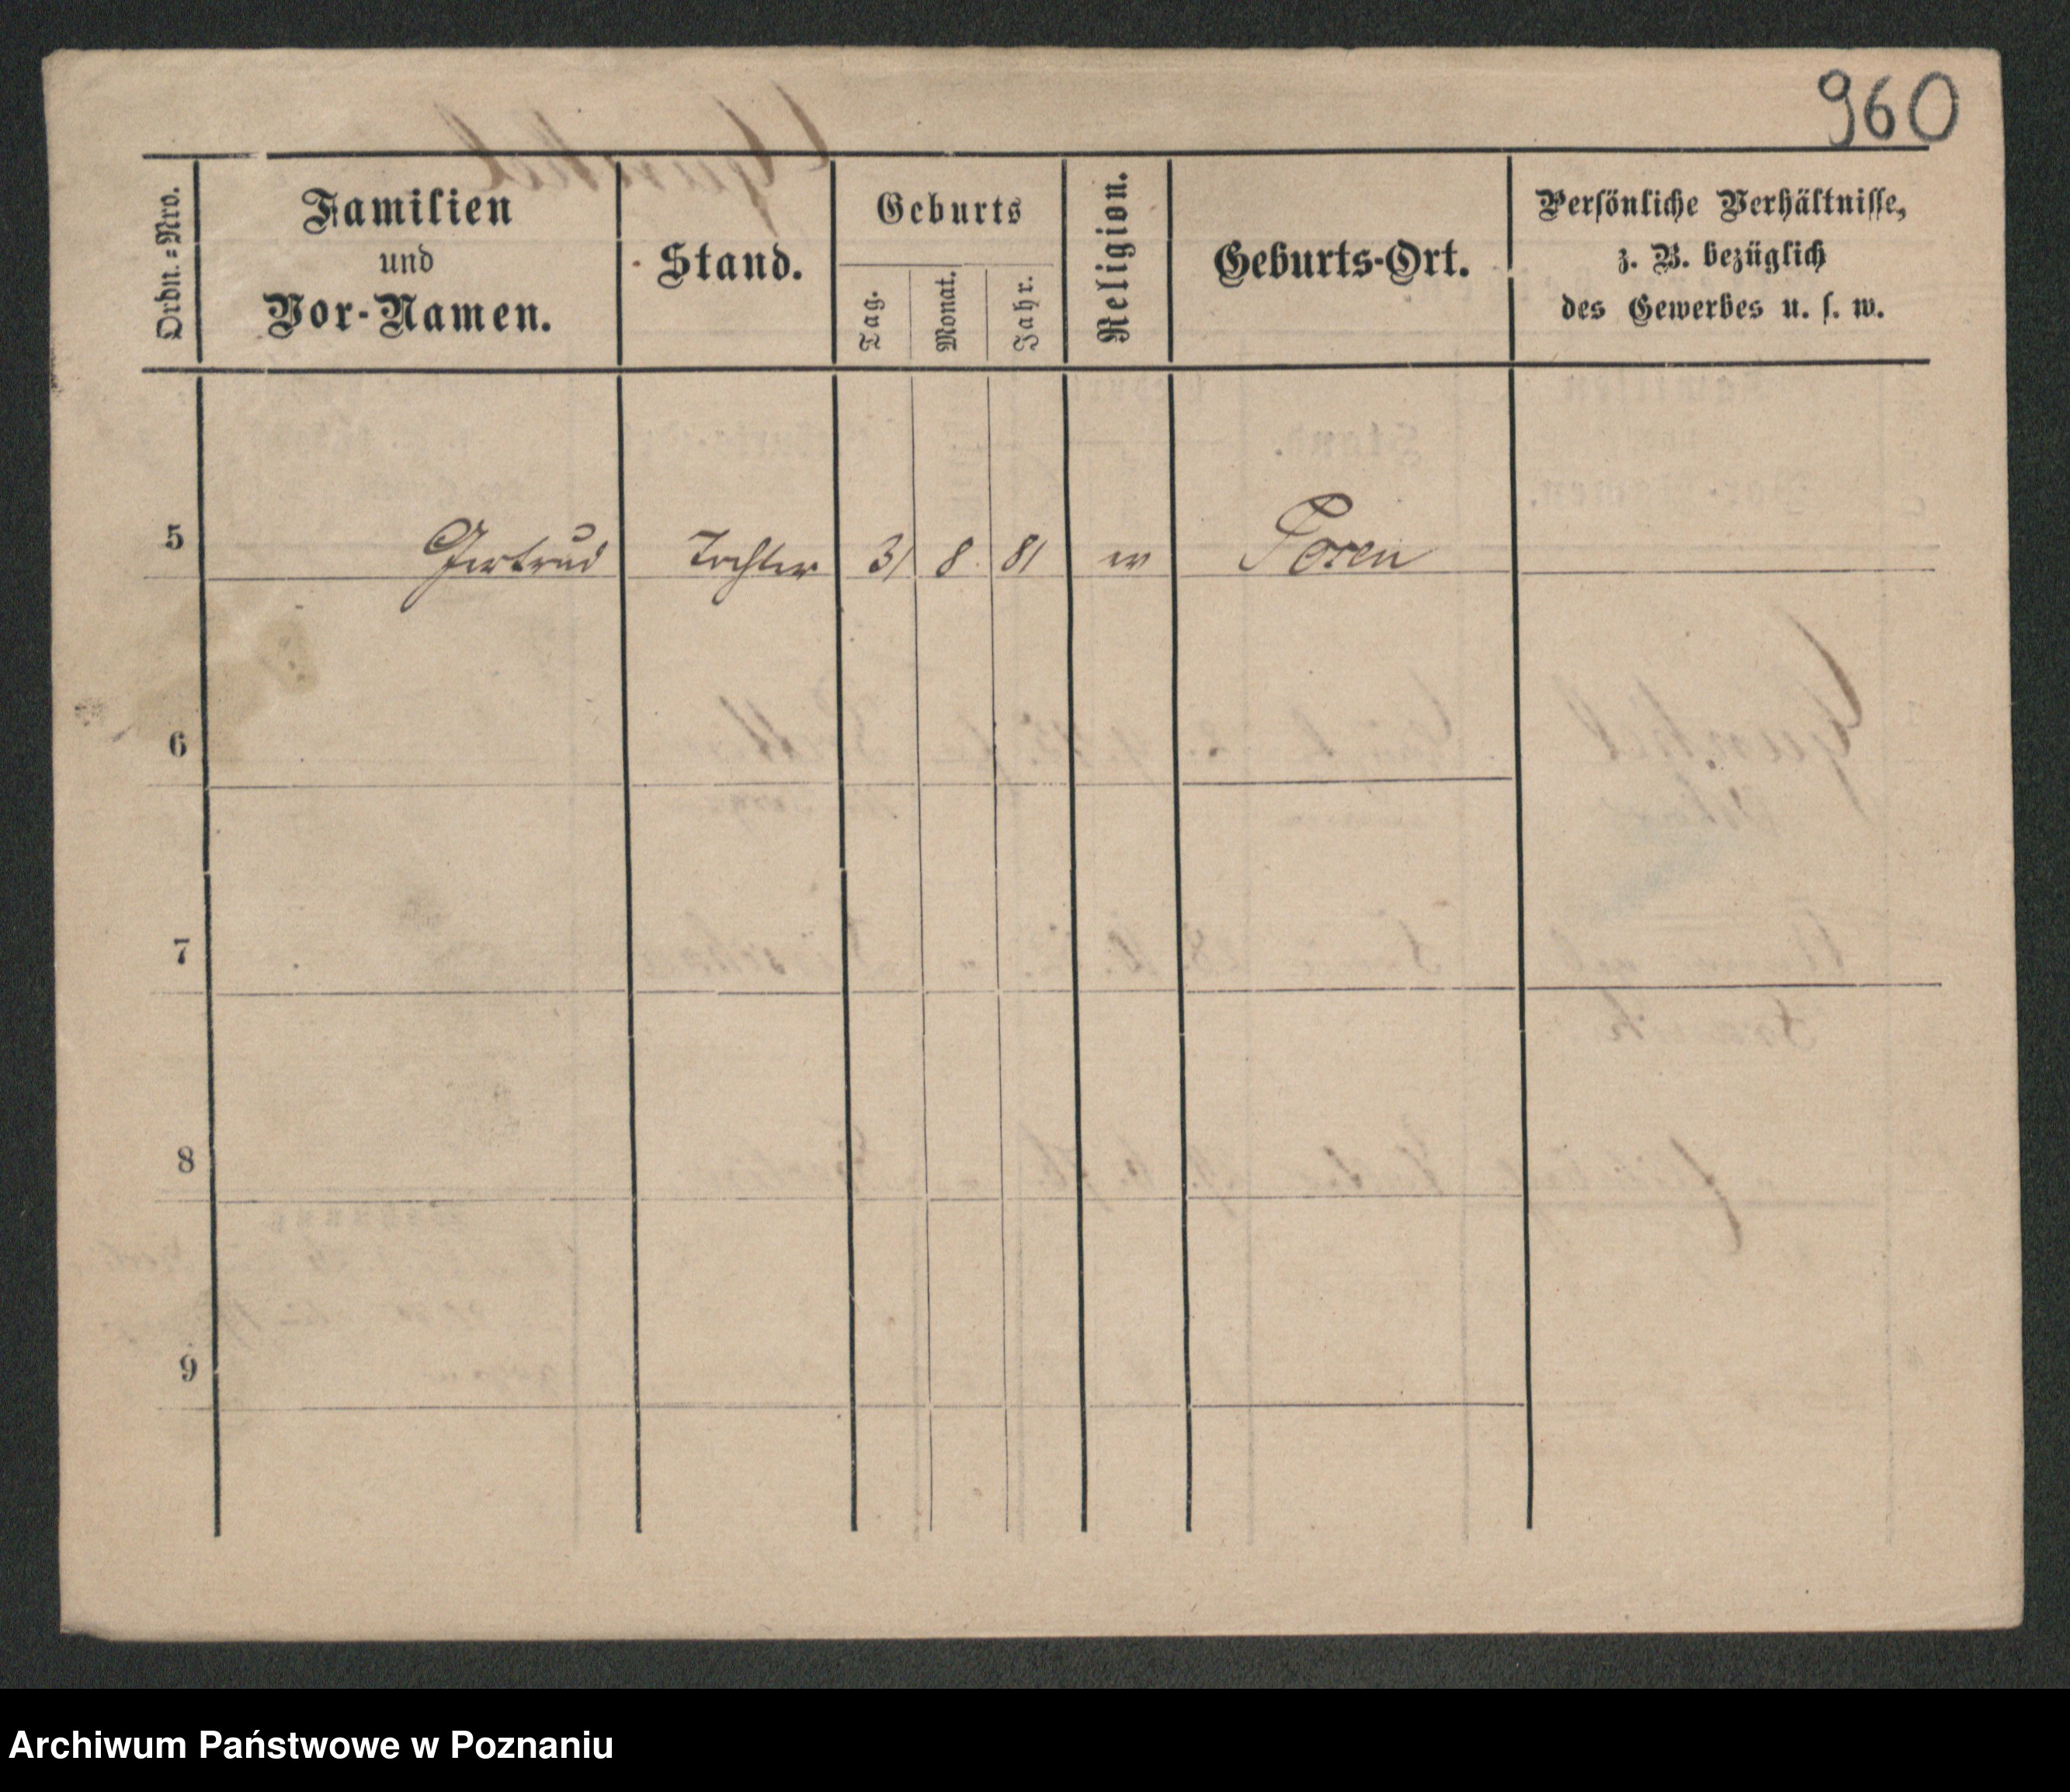 960
Ordn.=Nro.
Familien
und
Vor-Namen.
Stand.
Geburts
Tag.
Monat.
Jahr.
Religion.
Geburts-Ort.
Persönliche Verhältnisse,
z. B. bezüglich
des Gewerbes u. s. w.
5 Gertrud Tochter 31 8 81 Posen
6
7
8
9
Archiwum Państwowe w Poznaniu